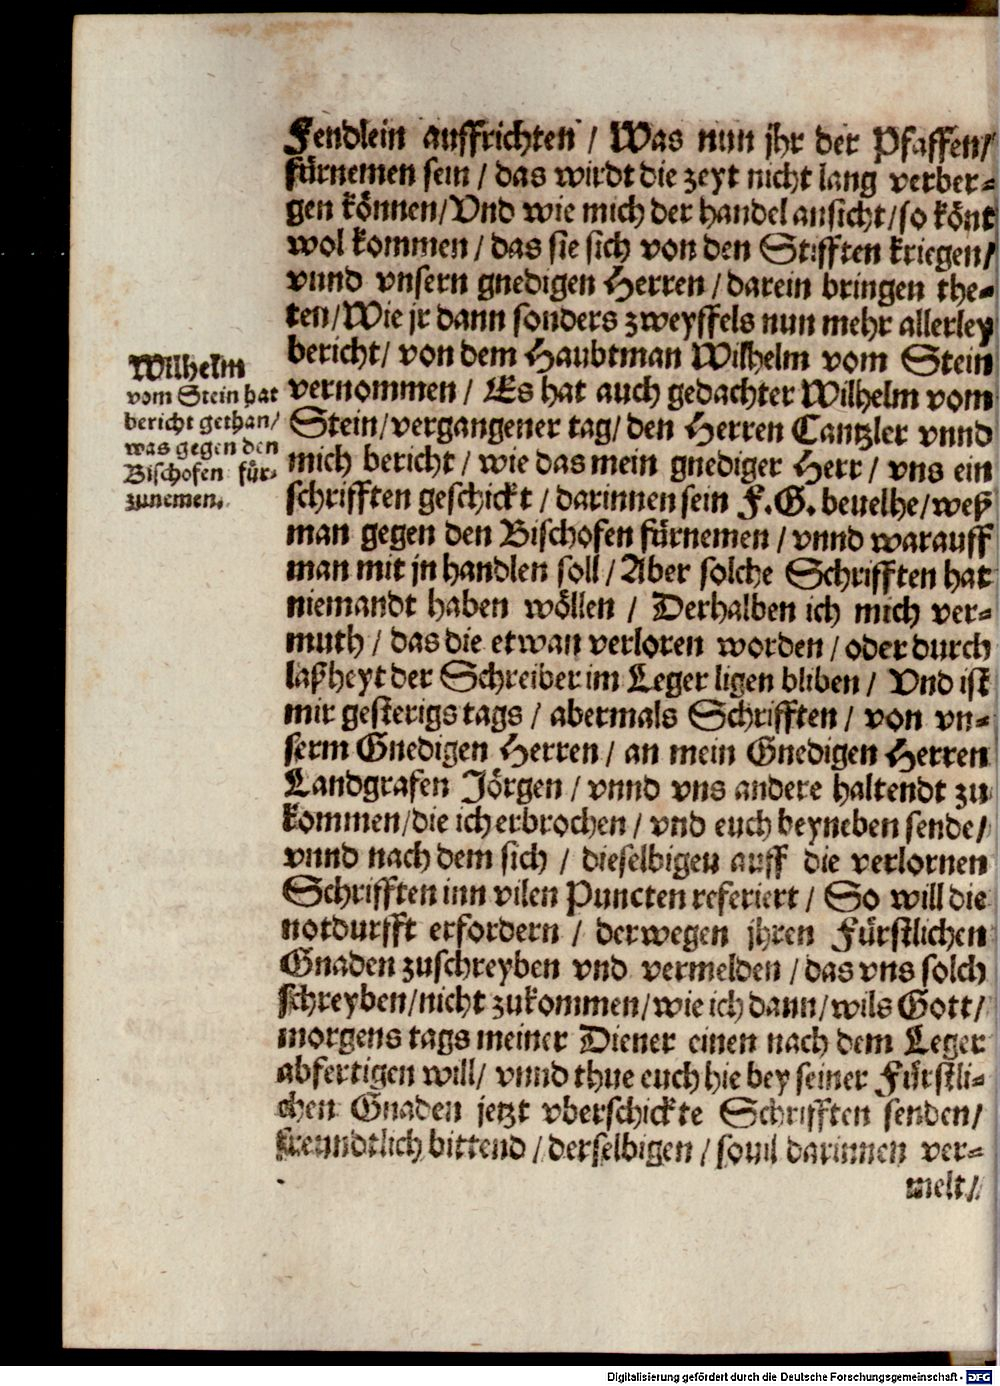 Fendlein auffrichten / Was nun jhr der Pfaffen /
fürnemen sein / das wirdt die zeyt nicht lang verber-
gen können / Vnd wie mich der handel ansicht / so könt
wol kommen / das sie sich von den Stifften kriegen /
vnnd vnsern gnedigen Herren / darein bringen the-
ten / Wie jr dann sonders zweyffels nun mehr allerley
bericht / von dem Haubtman Wilhelm vom Stein
vernommen / Es hat auch gedachter Wilhelm vom
Stein / vergangener tag / den Herren Cantzler vnnd
mich bericht / wie das mein gnediger Herr / vns ein
schrifften geschickt / darinnen sein F.G. beuelhe / weß
man gegen den Bischofen fürnemen / vnnd warauff
man mit jn handlen soll / Aber solche Schrifften hat
niemandt haben wöllen / Derhalben ich mich ver-
muth / das die etwan verloren worden / oder durch
laßheyt der Schreiber im Leger ligen bliben / Vnd ist
mir gesterigs tags / abermals Schrifften / von vn-
serm Gnedigen Herren / an mein Gnedigen Herren
Landgrafen Jörgen / vnnd vns andere haltendt zu
kommen / die ich erbrochen / vnd euch beyneben sende /
vnnd nach dem sich / dieselbigen auff die verlornen
Schrifften inn vilen Puncten referiert / So will die
notdurfft erfordern / derwegen jhren Fürstlichen
Gnaden zuschreyben vnd vermelden / das vns solch
schreyben / nicht zukommen / wie ich dann / wils Gott /
morgens tags meiner Diener einen nach dem Leger
abfertigen will / vnnd thue euch hie bey seiner Fürstli-
chen Gnaden jetzt vberschickte Schrifften senden /
freundtlich bittend / derselbigen / souil darinnen ver-
melt /
Wilhelm
vom Stein hat
bericht gethan /
was gegen den
Bischofen für-
zunemen.
Digitalisierung gefördert durch die Deutsche Forschungsgemeinschaft - DFG